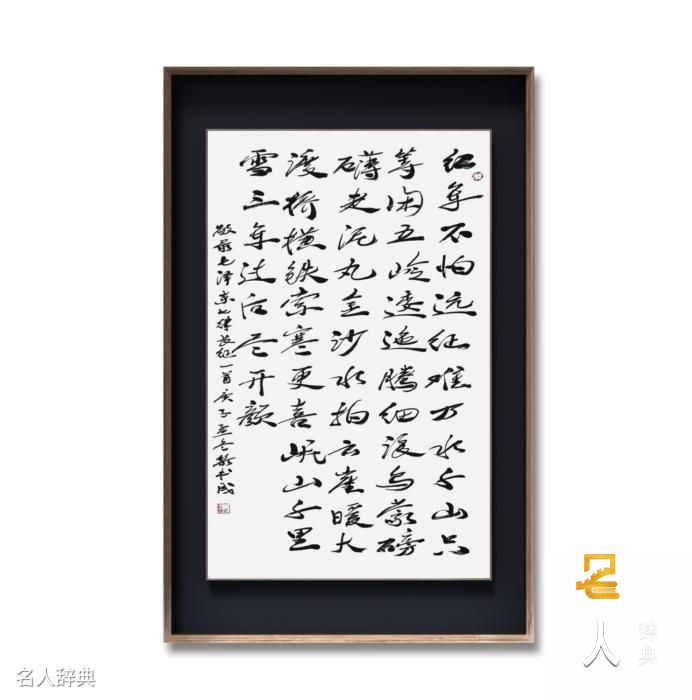 红军不怕远征难万水千山只
等闲五岭逶迤腾细浪乌蒙磅
礴走泥丸金沙水拍云崖暖大
渡桥横铁索寒更喜岷山千里
雪三军过后尽开颜
敬录毛泽东七律长征一首庚子
名人辞典
名人辞典